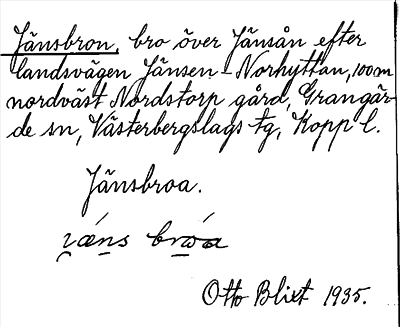 Jänsbron, bro över Jänsån efter
landsvägen Jänsen - Norhyttan, 100 m
nordväst Nordstorp gård, Grangär-
de sn, Västerbergslags tg, Kopp l.
Jänsbroa.
Otto Blixt 1935.